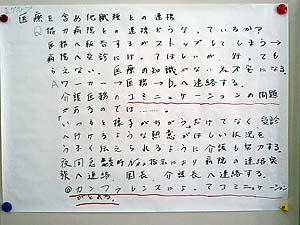 医療を含め他職種との連携
Q協力病院との連携どうなっているか?
医務へ報告するがストップしてしまう→
病院へ受診に行ってほしいが、行っても
らえない。医療の知識がない為不安になる。
Aワーカー→医務→Drへ連絡する。
介護医務のコミュニケーションの問題
があるのでは……。
"いつもと様子がちがう"だけでなく受診
へ行けるような熱意がほしい状況を
うまく伝えられるように介護も努力する。
夜間急変時Nsの指示により病院の連絡
へ連絡 園長、介護長へ連絡する。
◎カンファレンスによってコミュニケーション
がとれる。